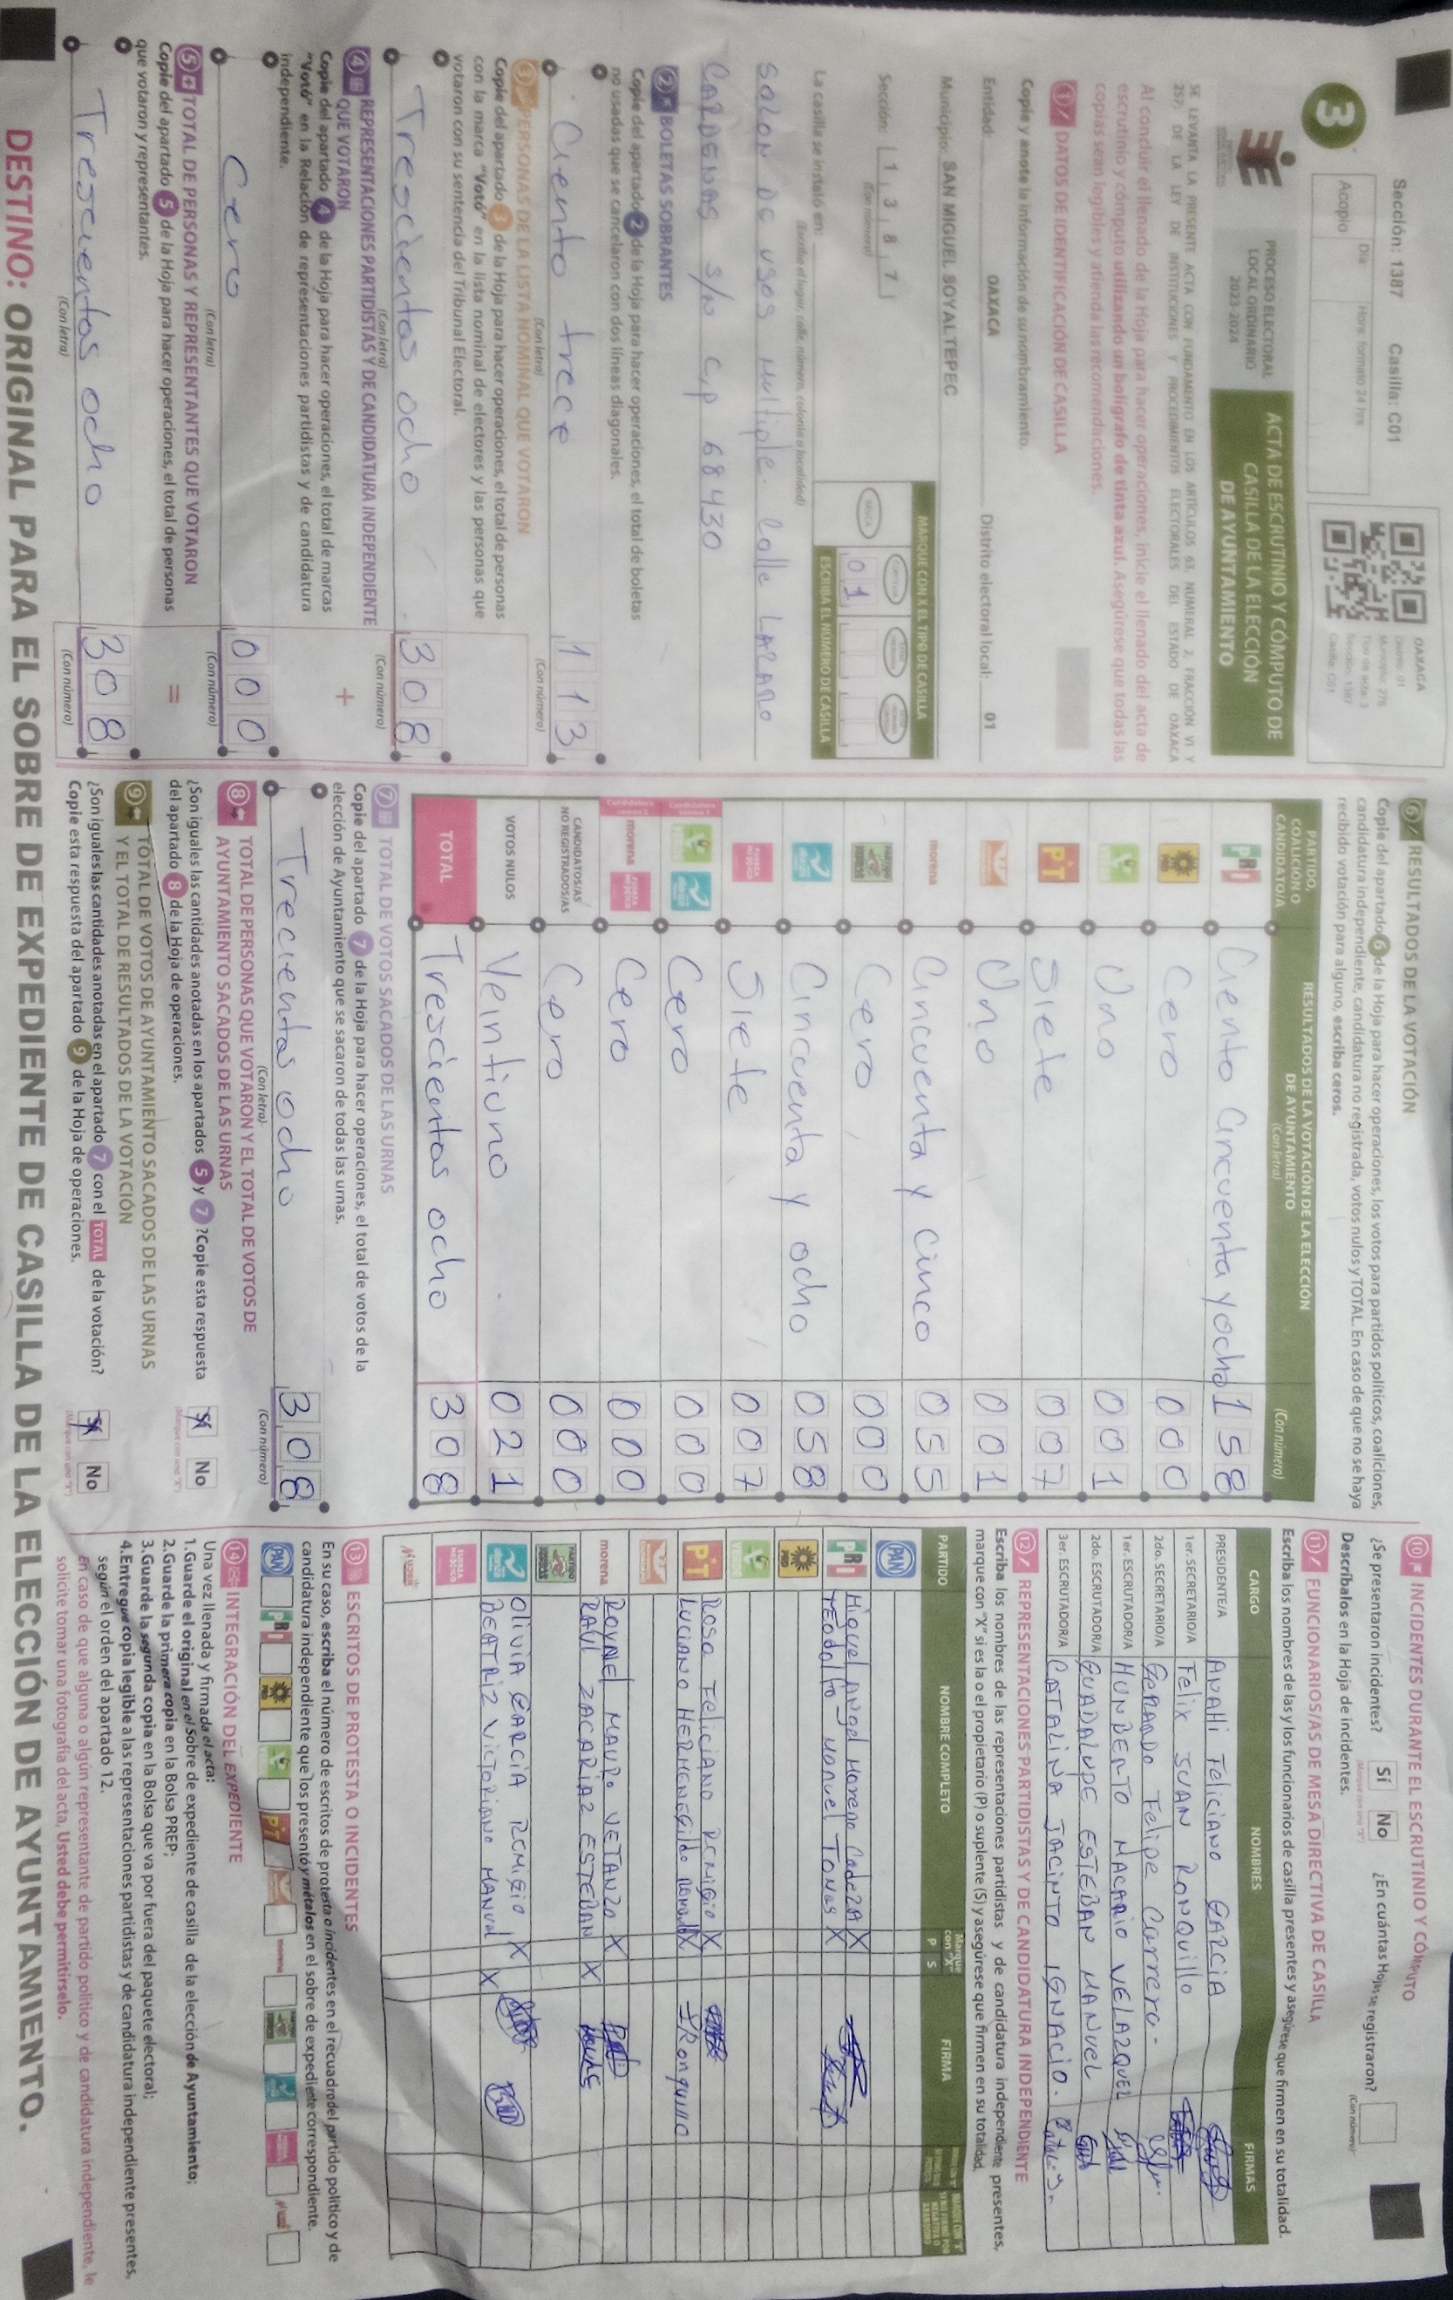 Sección: 1387 Casilla: C01
Día Hora: formato 24 hrs
Acopio
OAXACA
Distrito: 01
Municipio: 276
Tipo de acta: 3
Sección: 1387
Casilla: C01
3
PROCESO ELECTORAL
LOCAL ORDINARIO
2023-2024
ACTA DE ESCRUTINIO Y CÓMPUTO DE
CASILLA DE LA ELECCIÓN
DE AYUNTAMIENTO
SE LEVANTA LA PRESENTE ACTA CON FUNDAMENTO EN LOS ARTÍCULOS 63, NUMERAL 2, FRACCIÓN VI Y
257; DE LA LEY DE INSTITUCIONES Y PROCEDIMIENTOS ELECTORALES DEL ESTADO DE OAXACA
Al concluir el llenado de la Hoja para hacer operaciones, inicie el llenado del acta de
escrutinio y cómputo utilizando un bolígrafo de tinta azul. Asegúrese que todas las
copias sean legibles y atienda las recomendaciones.
1 DATOS DE IDENTIFICACIÓN DE CASILLA
Copie y anote la información de su nombramiento.
Entidad: OAXACA Distrito electoral local: 01
Municipio: SAN MIGUEL SOYALTEPEC
Sección: 1 3 8 7
(Con número)
MARQUE CON X EL TIPO DE CASILLA
01
ESCRIBA EL NÚMERO DE CASILLA
La casilla se instaló en:
(Escriba el lugar, calle, número, colonia o localidad)
SALON DE USOS MULTIPLE. Calle LAZARO
CARDENAS S/N C,P 68430
2 BOLETAS SOBRANTES
Copie del apartado 2 de la Hoja para hacer operaciones, el total de boletas
no usadas que se cancelaron con dos líneas diagonales.
Ciento trece 113
(Con letra) (Con número)
3 PERSONAS DE LA LISTA NOMINAL QUE VOTARON
Copie del apartado 3 de la Hoja para hacer operaciones, el total de personas
con la marca "Votó" en la lista nominal de electores y las personas que
votaron con su sentencia del Tribunal Electoral.
Trescientos ocho 308
(Con letra) (Con número)
4 REPRESENTACIONES PARTIDISTAS Y DE CANDIDATURA INDEPENDIENTE
QUE VOTARON
Copie del apartado 4 de la Hoja para hacer operaciones, el total de marcas
"Votó" en la Relación de representaciones partidistas y de candidatura
independiente.
+
Cero 000
(Con letra) (Con número)
5 TOTAL DE PERSONAS Y REPRESENTANTES QUE VOTARON
Copie del apartado 5 de la Hoja para hacer operaciones, el total de personas
que votaron y representantes.
=
Trescientos ocho 308
(Con letra) (Con número)
6 RESULTADOS DE LA VOTACIÓN
Copie del apartado 6 de la Hoja para hacer operaciones, los votos para partidos políticos, coaliciones,
candidatura independiente, candidatura no registrada, votos nulos y TOTAL. En caso de que no se haya
recibido votación para alguno, escriba ceros.
PARTIDO, COALICIÓN O CANDIDATO/A
RESULTADOS DE LA VOTACIÓN DE LA ELECCIÓN
DE AYUNTAMIENTO
(Con letra) (Con número)
PRI Ciento Cincuenta y ocho 158
PRD Cero 000
VERDE Uno 001
PT Siete 007
Uno 001
morena Cincuenta y Cinco 055
Cero 000
Cincuenta y ocho 058
Siete 007
Cero 000
morena Cero 000
CANDIDATOS/AS NO REGISTRADOS/AS Cero 000
VOTOS NULOS Veintiuno 021
TOTAL Trescientos ocho 308
7 TOTAL DE VOTOS SACADOS DE LAS URNAS
Copie del apartado 7 de la Hoja para hacer operaciones, el total de votos de la
elección de Ayuntamiento que se sacaron de todas las urnas.
Trecientos ocho 308
(Con letra) (Con número)
8 TOTAL DE PERSONAS QUE VOTARON Y EL TOTAL DE VOTOS DE
AYUNTAMIENTO SACADOS DE LAS URNAS
¿Son iguales las cantidades anotadas en los apartados 5 y 7 ? Copie esta respuesta
del apartado 8 de la Hoja de operaciones.
Sí No
9 TOTAL DE VOTOS DE AYUNTAMIENTO SACADOS DE LAS URNAS
Y EL TOTAL DE RESULTADOS DE LA VOTACIÓN
¿Son iguales las cantidades anotadas en el apartado 7 con el TOTAL de la votación?
Copie esta respuesta del apartado 9 de la Hoja de operaciones.
Sí No
10 INCIDENTES DURANTE EL ESCRUTINIO Y CÓMPUTO
¿Se presentaron incidentes? Sí No ¿En cuántas Hojas se registraron?
(Con número)
Descríbalos en la Hoja de incidentes.
11 FUNCIONARIOS/AS DE MESA DIRECTIVA DE CASILLA
Escriba los nombres de las y los funcionarios de casilla presentes y asegúrese que firmen en su totalidad.
CARGO NOMBRES FIRMAS
PRESIDENTE/A Anahi Feliciano GARCIA
1er. SECRETARIO/A Felix JUAN RONQUILLO
2do. SECRETARIO/A GERARDO Felipe Carrera.
1er. ESCRUTADOR/A HUNBERTO MACARIO VELAZQUEZ
2do. ESCRUTADOR/A GUADALUPE ESTEBAN MANUEL
3er. ESCRUTADOR/A CATALINA JACINTO IGNACIO.
12 REPRESENTACIONES PARTIDISTAS Y DE CANDIDATURA INDEPENDIENTE
Escriba los nombres de las representaciones partidistas y de candidatura independiente presentes,
marque con "X" si es la o el propietario (P) o suplente (S) y asegúrese que firmen en su totalidad.
PARTIDO NOMBRE COMPLETO Marque con "X" P S FIRMA
PAN
PRI Miguel Angel Moreno X
Teodolfo Manuel Tomas X
PRD
VERDE
PT Rosa Feliciano Remigio X
Luciano HERMENEGILDO X
morena ROYNEL MAURO VETANZO X
RAUL ZACARIAZ ESTEBAN X
OLIVIA GARCIA REMIGIO X
BEATRIZ VICTORIANO MANUEL X
13 ESCRITOS DE PROTESTA O INCIDENTES
En su caso, escriba el número de escritos de protesta o incidentes en el recuadro del partido político y de
candidatura independiente que los presentó y métalos en el sobre de expediente correspondiente.
PAN PRI PRD VERDE PT morena
14 INTEGRACIÓN DEL EXPEDIENTE
Una vez llenada y firmada el acta:
1. Guarde el original en el Sobre de expediente de casilla de la elección de Ayuntamiento;
2. Guarde la primera copia en la Bolsa PREP;
3. Guarde la segunda copia en la Bolsa que va por fuera del paquete electoral;
4. Entregue copia legible a las representaciones partidistas y de candidatura independiente presentes,
según el orden del apartado 12.
En caso de que alguna o algún representante de partido político y de candidatura independiente, le
solicite tomar una fotografía del acta, Usted debe permitírselo.
DESTINO: ORIGINAL PARA EL SOBRE DE EXPEDIENTE DE CASILLA DE LA ELECCIÓN DE AYUNTAMIENTO.